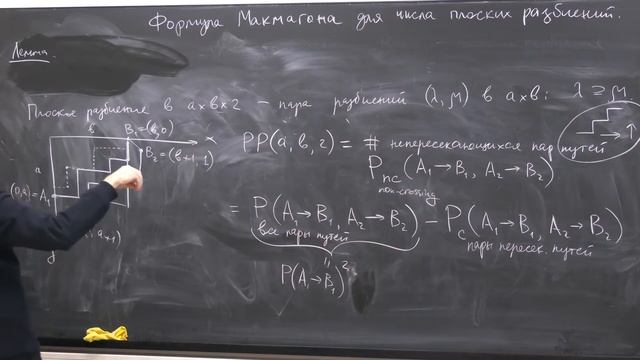 Формула Макмагона для числа плоских разбиений.
Лемма.
Плоское разбиение в a×b×2 – пара разбиений (λ, μ) в a×b: λ ⊇ μ.
b B₁=(b,0) x
PP(a,b,2) = # непересекающихся пар путей
a B₂=(b+1,-1)
P_nc (A₁→B₁, A₂→B₂)
non-crossing
(0,a)=A₁
= P(A₁→B₁, A₂→B₂) – P_c(A₁→B₁, A₂→B₂)
все пары путей пары пересек. путей
, a+1)
y
P(A₁→B₁)²